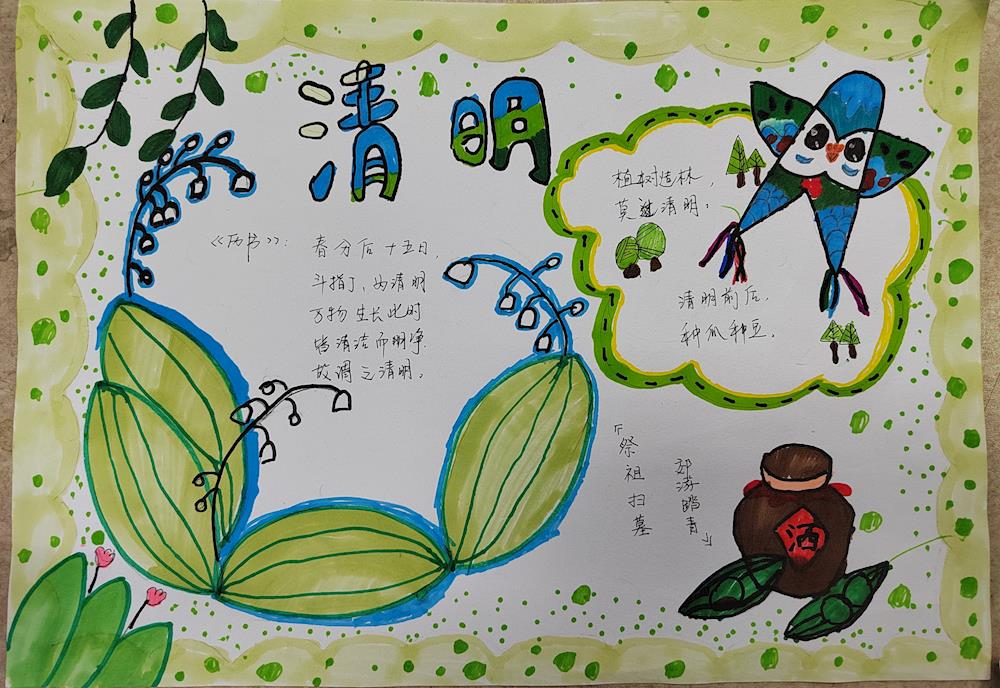 清明
《历书》：春分后十五日，
斗指丁，为清明
万物生长此时
皆清洁而明净.
故谓之清明。
植树造林，
莫过清明。
清明前后，
种瓜种豆。
『祭祖扫墓
郊游踏青』
酒